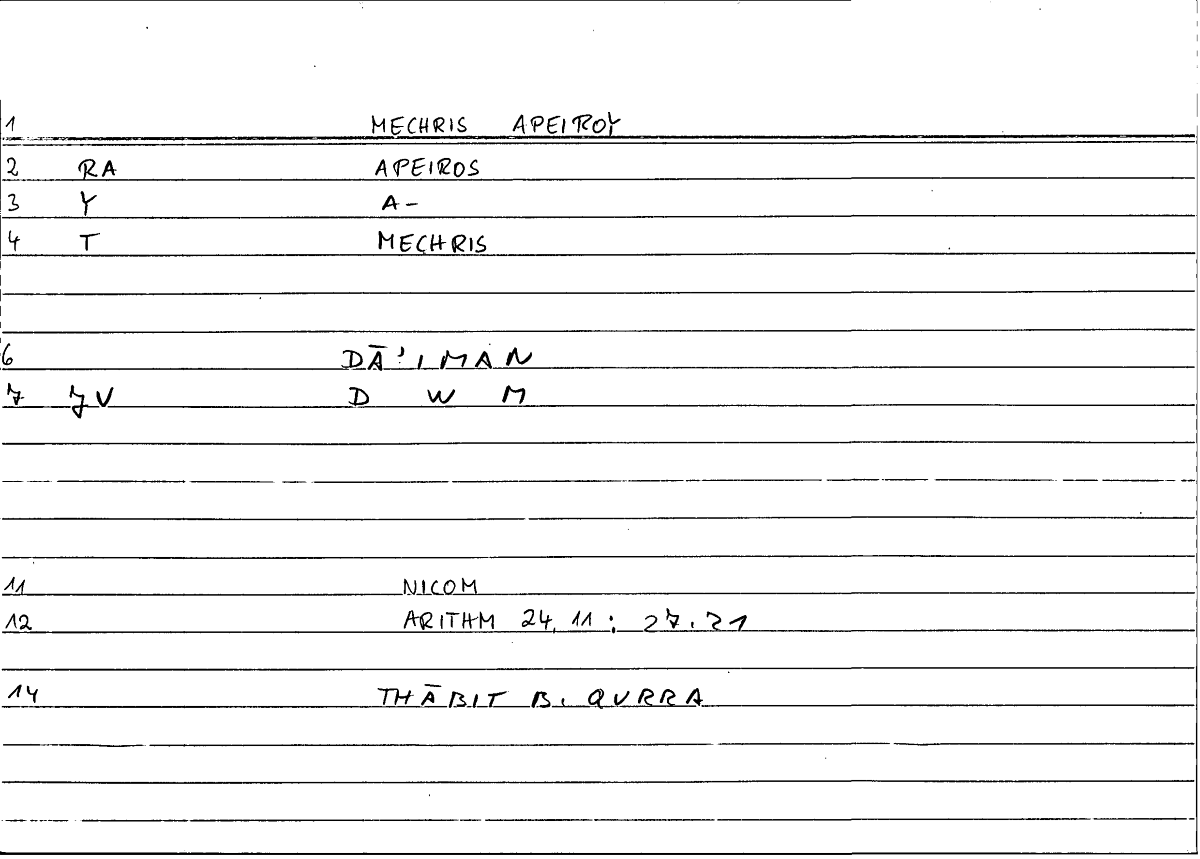 1 MECHRIS APEIROY
2 RA APEIROS
3 Y A-
4 T MECHRIS
6 DĀ'IMAN
7 JV D W M
11 NICOM
12 ARITHM 24,11 : 27.21
14 THĀBIT B. QURRA